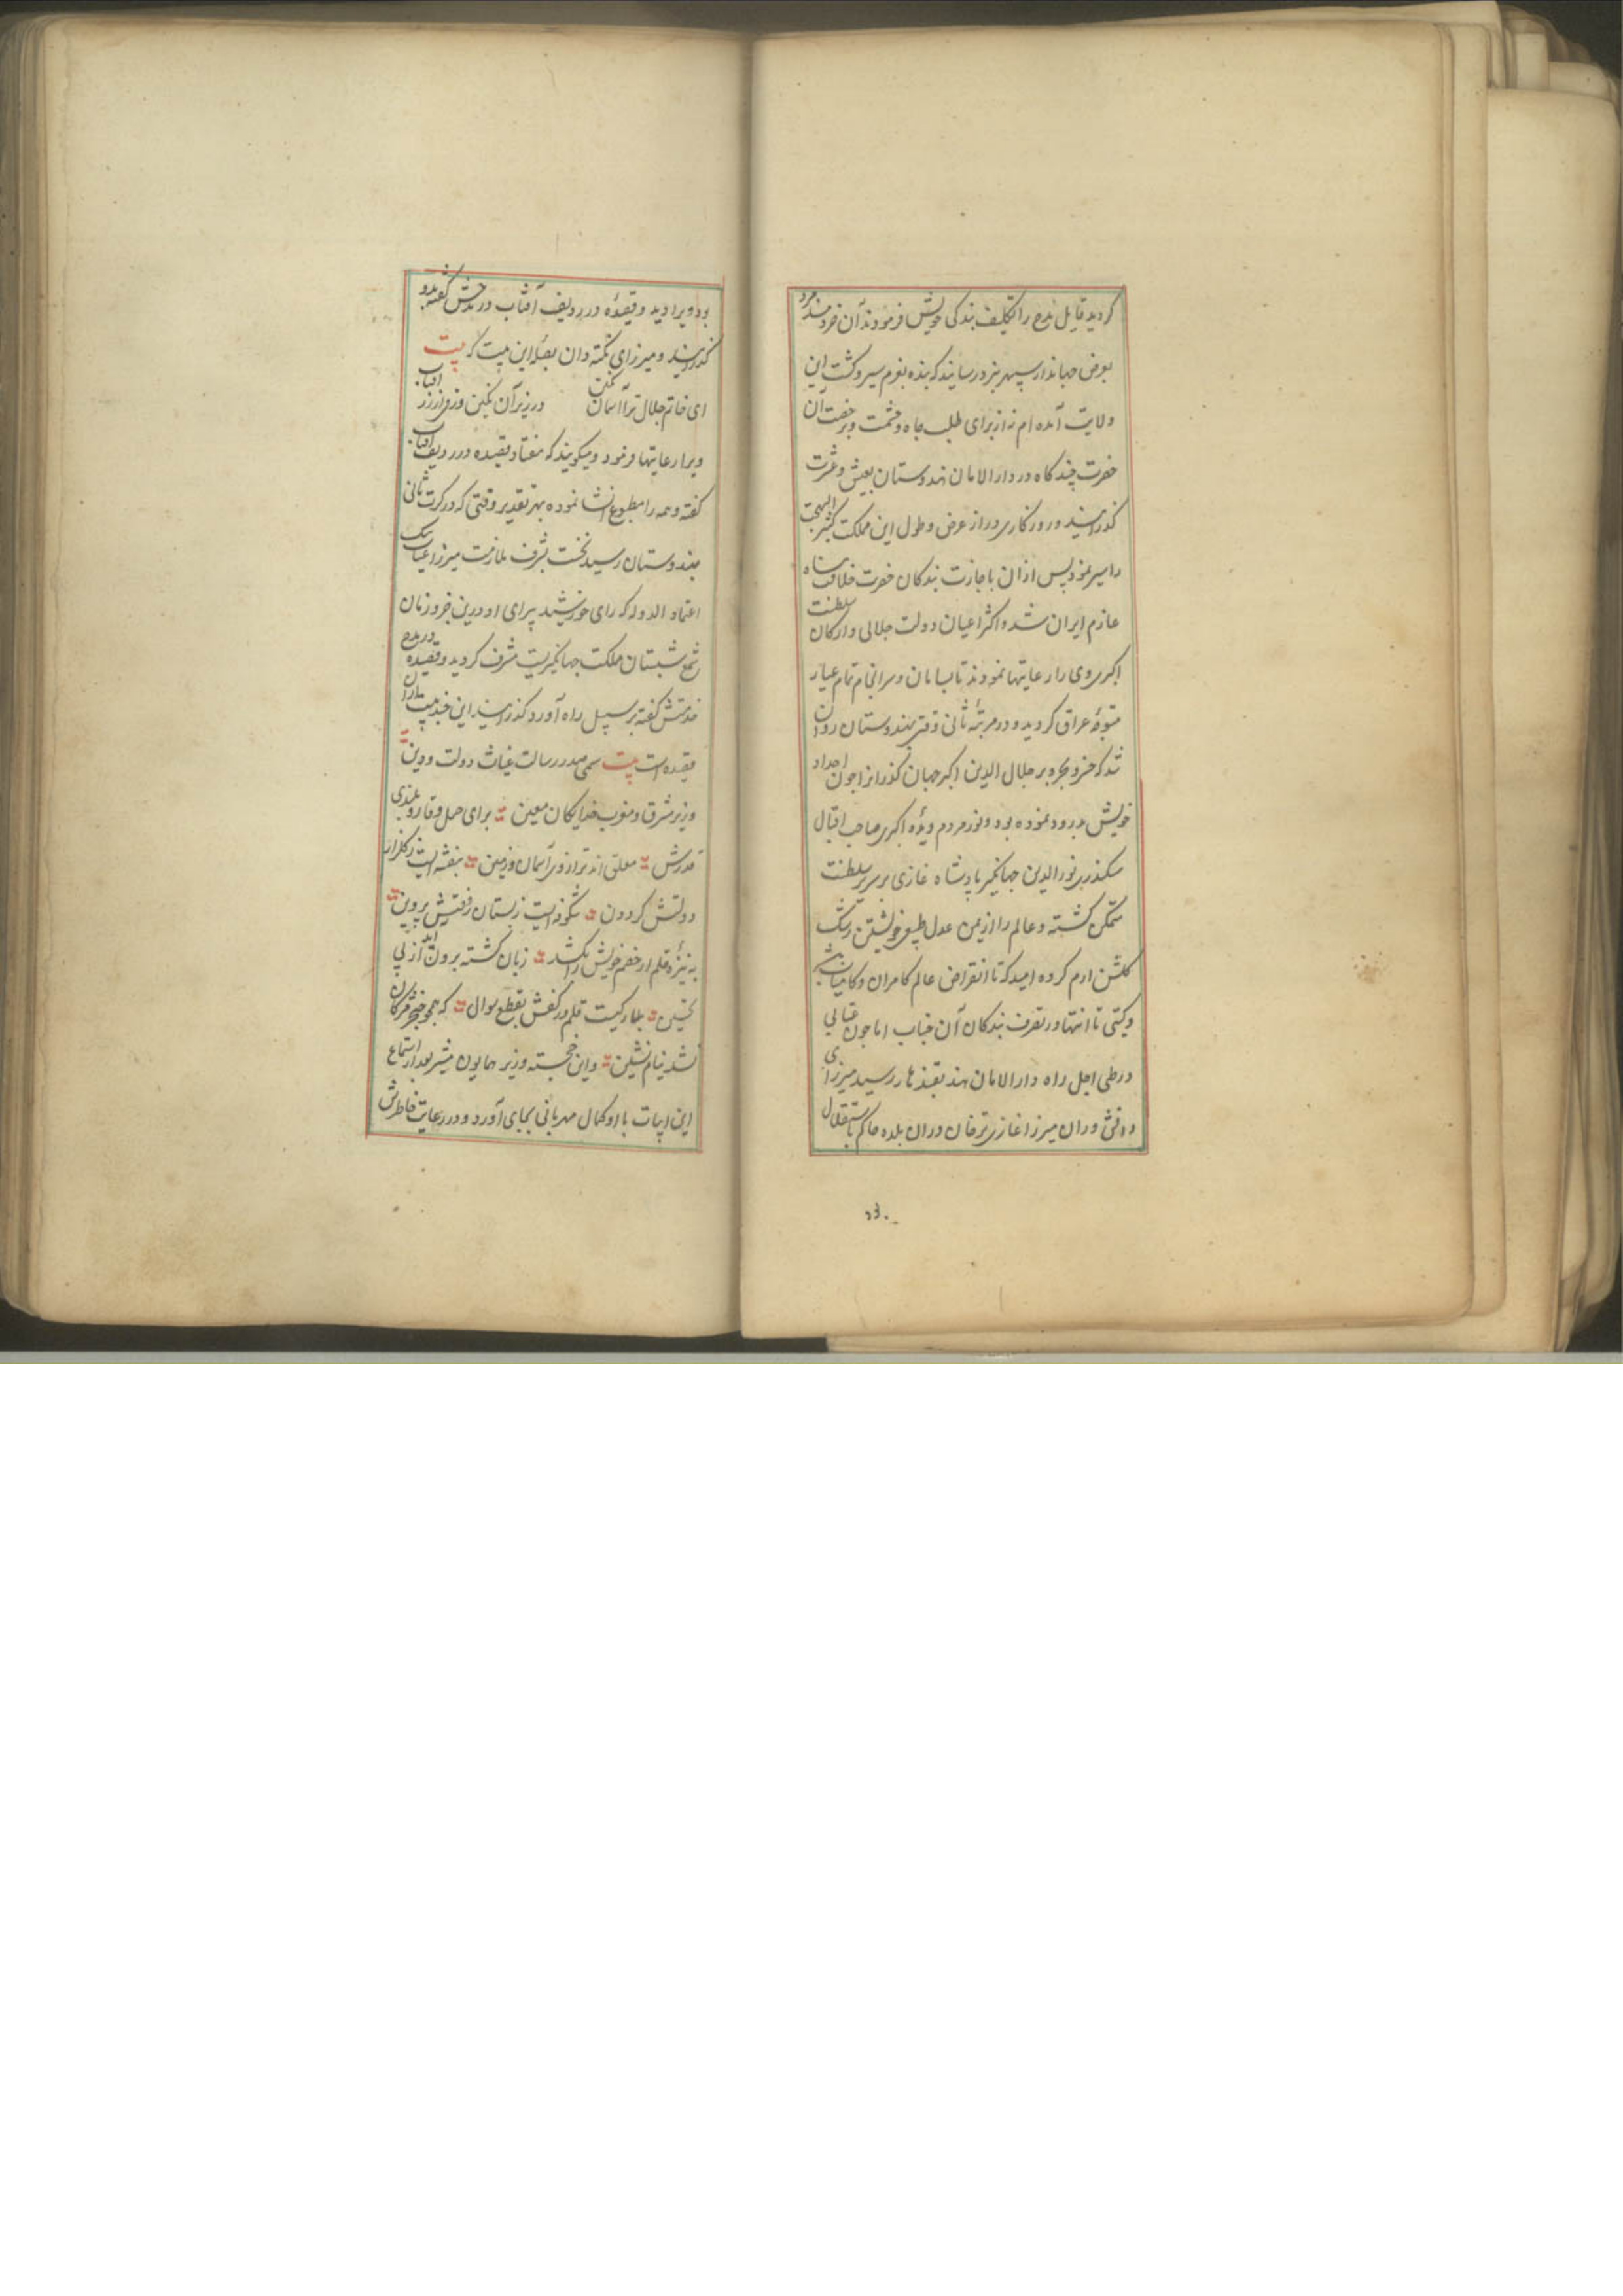 کردید قایل مدح را تکلیف بندکی خویش فرمودند آن خردمند مرد
بعرض جهاندار سپهر بنرد رسانید که بنده بعزم سیر و کشت این
ولایت آمده ام نه از برای طلب جاه و حشمت و برخصت آن
حضرت چند کاه در دار الامان هندوستان بعیش و عشرت
کذرانید و روزکاری دراز عرض و طول این مملکت کثیر البهجت
را سیر نمود پس از ان باجازت بندکان حضرت خلافت پناه
عازم ایران شد و اکثر اعیان دولت جلالی و ارکان سلطنت
اکبری وی را رعایتها نمودند تا بسامان و سرانجام تمام عیار
متوجهٔ عراق کردید و در مرتبهٔ ثانی وقتی بهندوستان روان
شد که خسرو بحر و بر جلال الدین اکبر جهان کذرانرا چون اجداد
خویش بدرود نموده بود و نور مردم دیدهٔ اکبری صاحب اقبال
سکندری نور الدین جهانکیر پادشاه غازی بر سریر سلطنت
متمکن کشته و عالم را از یمن عدل طبیعی خویشتن رشک
کلشن ارم کرده امید که تا انقراض عالم کامران و کامیاب باشد
و کیتی تا انتها در تصرف بندکان آن جناب اما چون غیالی
در طی اجل راه دار الامان هند بقندهار رسید میرزای
دانش وران میرزا غازی ترخان دران بلده حاکم باستقلال
بود ویرا دید و قصیدهٔ در ردیف آفتاب در مدحش کفته بدو
کذرانید و میرزای نکته دان بصلهٔ این بیت که بیت
ای خاتم جلال ترا آسمان نکین در زیر آن نکین ورقی از زر آفتاب
ویرا رعایتها فرمود و میکویند که هفتاد قصیده در ردیف آفتاب
کفته و همه را مطبوع انشا نموده بهر تقدیر وقتی که در کرت ثانی
بهندوستان رسید نخست بشرف ملازمت میرزا غیاث بیک
اعتماد الدوله که رای خورشید پیرای او درین جزو زمان
شمع شبستان مملکت جهانکیریست مشرف کردید و قصیده در مدح
خدمتش کفته بر سبیل راه آورد کذرانید این چند بیت ازان
قصیده است بیت سمی صدر رسالت غیاث دولت و دین
وزیر مشرق و مغرب خدایکان معین برای حمل وقار و بلندی
قدرش معلق اند ترازوی آسمان و زمین بنفشه ایست ز کلزار
دولتش کردون شکوفه ایست ز بستان رفعتش پروین
به نیزهٔ قلم ار خصم خویش را بکشد زبان کشته برون آید از پی
تحسین بکارکیت قلم در کفش بقطع سوال که همچو خنجر ترکان
نشد نیام نشین و این خجسته وزیر همایون مشیر بعد از استماع
این ابیات با او کمال مهربانی بجای آورد و در رعایت خاطرش